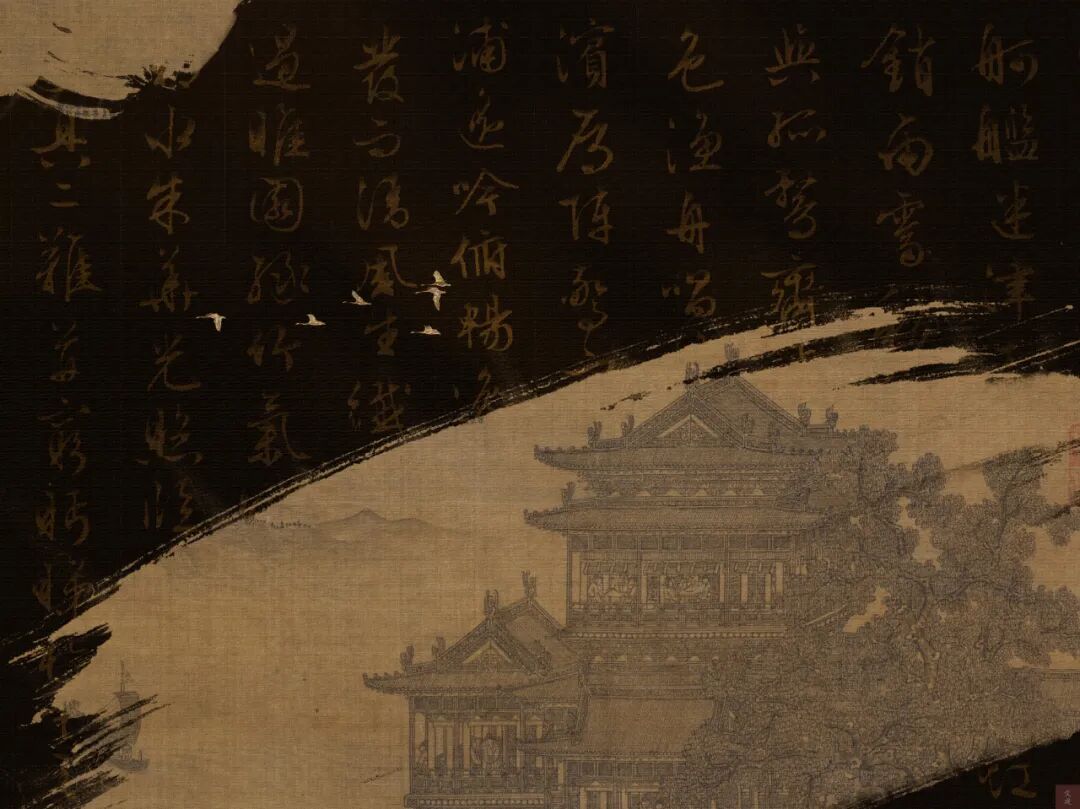 舸艦迷津虹
銷雨霽
與孤鶩齊
色漁舟唱
濱雁陣驚
浦遙吟俯暢逸
發而清風生纖
遏睢園綠竹氣
水朱華光照臨
具二難并窮眄睇於